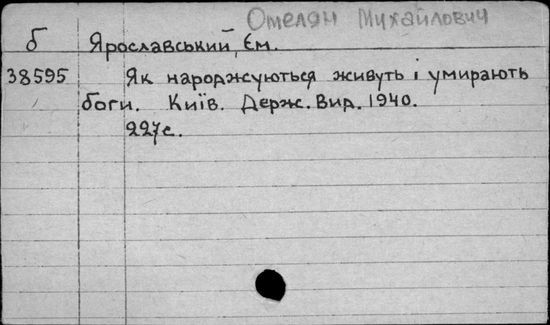 Омелян Михайлович
б Ярославський, Єм.
38595 Як народжуються живуть і умирають
боги. Київ. Держ. Вид. 1940.
227с.